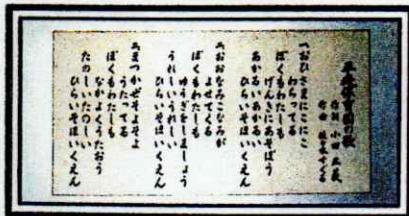 平磯保育園の歌
作詞 小田
作曲
一、おひさまにこにこ
わらってる
ぼくもわたしも
げんきにあそぼう
あかるいあかるい
ひらいそほいくえん
二、おおなみこなみが
よせてくる
ぼくもわたしも
ゆうぎをしましょう
うれしいうれしい
ひらいそほいくえん
三、まつかぜそよそよ
うたってる
ぼくもわたしも
なかよくうたおう
たのしいたのしい
ひらいそほいくえん